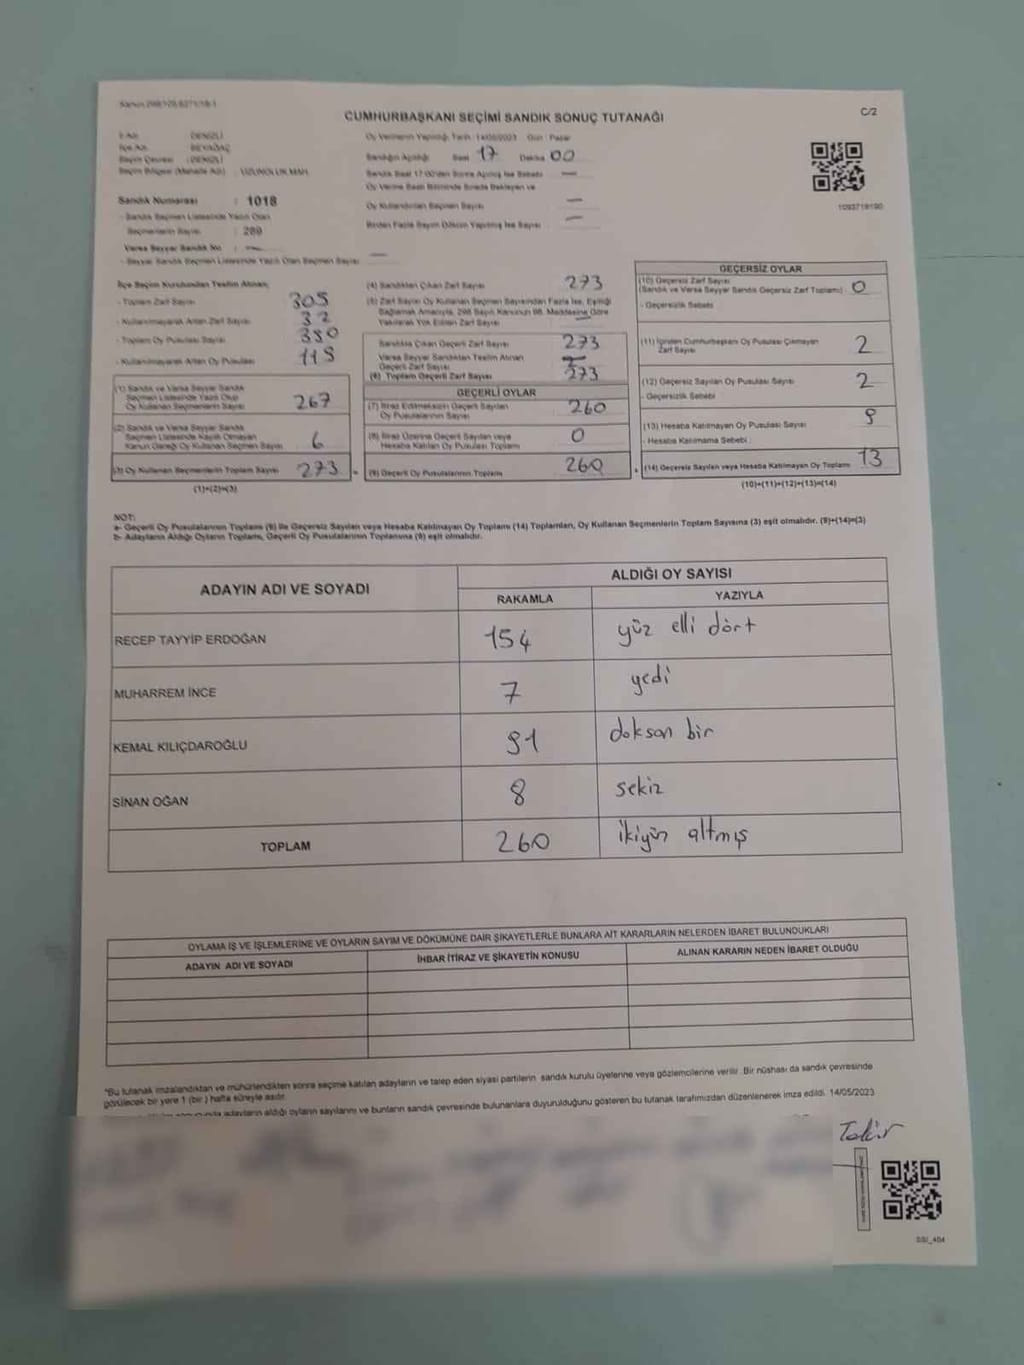 CUMHURBAŞKANI SEÇİMİ SANDIK SONUÇ TUTANAĞI
C/2
Oy Vermenin Yapıldığı Tarih: 14/05/2023 Gün: Pazar
İl Adı DENİZLİ
İlçe Adı BEYAĞAÇ
Seçim Çevresi : DENİZLİ
Seçim Bölgesi (Mahalle Adı) : UZUNOLUK MAH.
Sandığın Açıldığı Saat 17 Dakika 00
Sandık Saat 17:00'den Sonra Açılmış İse Sebebi —
Oy Verme Saati Bitiminde Sırada Bekleyen ve
Oy Kullandırılan Seçmen Sayısı —
Birden Fazla Sayım Döküm Yapılmış İse Sayısı —
1093719190
Sandık Numarası : 1018
- Sandık Seçmen Listesinde Yazılı Olan
Seçmenlerin Sayısı : 289
Varsa Seyyar Sandık No : —
- Seyyar Sandık Seçmen Listesinde Yazılı Olan Seçmen Sayısı —
İlçe Seçim Kurulundan Teslim Alınan;
- Toplam Zarf Sayısı 305
- Kullanılmayarak Artan Zarf Sayısı 32
- Toplam Oy Pusulası Sayısı
- Kullanılmayarak Artan Oy Pusulası
(1) Sandık ve Varsa Seyyar Sandık
Seçmen Listesinde Yazılı Olup
Oy Kullanan Seçmenlerin Sayısı 267
(2) Sandık ve Varsa Seyyar Sandık
Seçmen Listesinde Kayıtlı Olmayan
Kanun Gereği Oy Kullanan Seçmen Sayısı 6
(3) Oy Kullanan Seçmenlerin Toplam Sayısı 273
(1)+(2)=(3)
(4) Sandıktan Çıkan Zarf Sayısı 273
(5) Zarf Sayısı Oy Kullanan Seçmen Sayısından Fazla İse, Eşitliği
Sağlamak Amacıyla, 298 Sayılı Kanunun 98. Maddesine Göre
Yakılarak Yok Edilen Zarf Sayısı —
Sandıkta Çıkan Geçerli Zarf Sayısı 273
Varsa Seyyar Sandıktan Teslim Alınan
Geçerli Zarf Sayısı
(6) Toplam Geçerli Zarf Sayısı 273
GEÇERLİ OYLAR
(7) İtiraz Edilmeksizin Geçerli Sayılan
Oy Pusulalarının Sayısı 260
(8) İtiraz Üzerine Geçerli Sayılan veya
Hesaba Katılan Oy Pusulası Toplamı 0
(9) Geçerli Oy Pusulalarının Toplamı 260
GEÇERSİZ OYLAR
(10) Geçersiz Zarf Sayısı
(Sandık ve Varsa Seyyar Sandık Geçersiz Zarf Toplamı) 0
- Geçersizlik Sebebi
(11) İçinden Cumhurbaşkanı Oy Pusulası Çıkmayan
Zarf Sayısı 2
(12) Geçersiz Sayılan Oy Pusulası Sayısı 2
- Geçersizlik Sebebi
(13) Hesaba Katılmayan Oy Pusulası Sayısı 9
- Hesaba Katılmama Sebebi :
(14) Geçersiz Sayılan veya Hesaba Katılmayan Oy Toplamı 13
(10)+(11)+(12)+(13)=(14)
NOT:
a- Geçerli Oy Pusulalarının Toplamı (9) ile Geçersiz Sayılan veya Hesaba Katılmayan Oy Toplamı (14) Toplamları, Oy Kullanan Seçmenlerin Toplam Sayısına (3) eşit olmalıdır. (9)+(14)=(3)
b- Adayların Aldığı Oyların Toplamı, Geçerli Oy Pusulalarının Toplamına (9) eşit olmalıdır.
ADAYIN ADI VE SOYADI
ALDIĞI OY SAYISI
RAKAMLA YAZIYLA
RECEP TAYYİP ERDOĞAN 154 yüz elli dört
MUHARREM İNCE 7 yedi
KEMAL KILIÇDAROĞLU 91 doksan bir
SİNAN OĞAN 8 sekiz
TOPLAM 260 ikiyüz altmış
OYLAMA İŞ VE İŞLEMLERİNE VE OYLARIN SAYIM VE DÖKÜMÜNE DAİR ŞİKAYETLERLE BUNLARA AİT KARARLARIN NELERDEN İBARET BULUNDUKLARI
ADAYIN ADI VE SOYADI İHBAR İTİRAZ VE ŞİKAYETİN KONUSU ALINAN KARARIN NEDEN İBARET OLDUĞU
"Bu tutanak imzalandıktan ve mühürlendikten sonra seçime katılan adayların ve talep eden siyasi partilerin sandık kurulu üyelerine veya gözlemcilerine verilir. Bir nüshası da sandık çevresinde
görülecek bir yere 1 (bir ) hafta süreyle asılır.
adayların aldığı oyların sayılarını ve bunların sandık çevresinde bulunanlara duyurulduğunu gösteren bu tutanak tarafımızdan düzenlenerek imza edildi. 14/05/2023